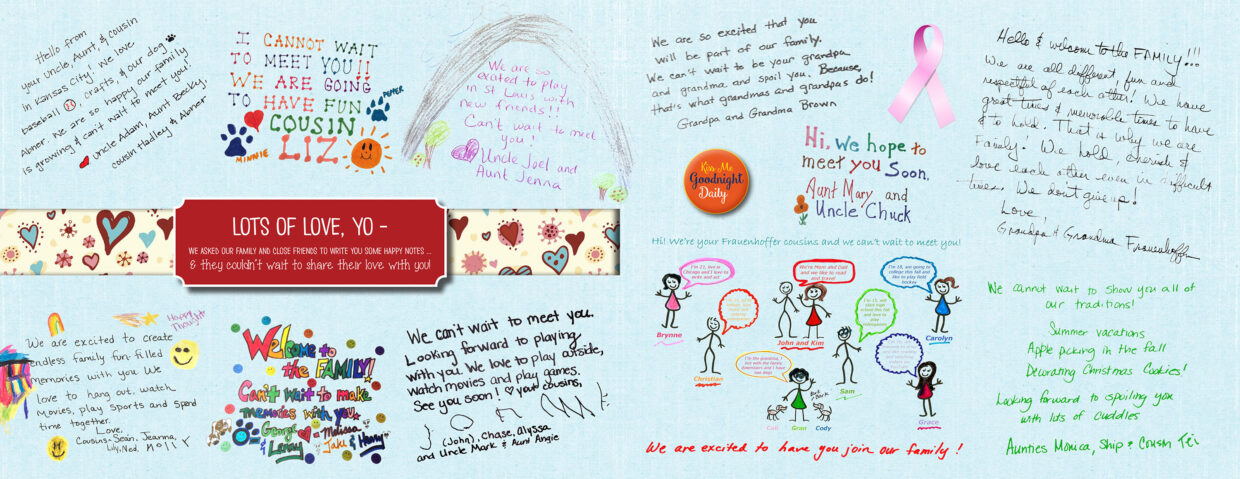 Hello from
your Uncle, Aunt, & cousin
in Kansas City! We love
baseball, crafts & our dog
Abner. We are so happy our family
is growing & can't wait to meet you!
Uncle Adam, Aunt Becky,
cousin Hadley & Abner
I CANNOT WAIT
TO MEET YOU!!
WE ARE GOING
TO HAVE FUN
COUSIN
LIZ
MINNIE
We are so
exated to play
in St Louis with
new friends!!
Can't wait to meet
you!
Uncle Joel and
Aunt Jenna
LOTS OF LOVE, YO -
WE ASKED OUR FAMILY AND CLOSE FRIENDS TO WRITE YOU SOME HAPPY NOTES ...
& they couldn't wait to share their love with you!
Happy
Thoughts
We are excited to create
endless family fun filled
memories with you. We
love to hang out, watch
movies, play sports and spend
time together.
Love,
Cousins- Sean, Jeanna,
Lily, Ned,
Welcome
to the
FAMILY!
Can't Wait to make
memories with you.
George & Melissa
Lanny Jake & Henry
We can't wait to meet you.
Looking forward to playing
with you. We love to play outside,
watch movies and play games.
See you soon! ♡ your cousins,
(John), Chase, Alyssa
and Uncle Mark & Aunt Angie
We are so excited that you
will be part of our family.
We can't wait to be your grandpa
and grandma and spoil you. Because,
that's what grandmas and grandpas do!
Grandpa and Grandma Brown
Kiss Me
Goodnight
Daily
Hi, we hope to
meet you Soon.
Aunt Mary and
Uncle Chuck
Hello & welcome to the FAMILY!!!
We are all different, fun and
respectful of each other! We have
great times & memorable times to have
& to hold. That is why we are
Family. We hold, cherish &
love each other even in difficult
times. We don't give up!
Love,
Grandpa & Grandma Frauenhoffer
Hi! We're your Frauenhoffer cousins and we can't wait to meet you!
I'm 21, live in
Chicago and I love to
write and act
We're Mom and Dad
and we like to read
and travel
I'm 18, am going to
college this fall and
like to play field
hockey
Brynne
John and Kim
Carolyn
Christian
I'm the grandma, I
live with the family
downstairs and I have
two dogs
Sam
Cali
Gran
Cody
Grace
We are excited to have you join our family!
We cannot wait to show you all of
our traditions!
Summer vacations
Apple picking in the fall
Decorating Christmas Cookies!
Looking forward to spoiling you
with lots of cuddles
Aunties Monica, Ship & Cousin